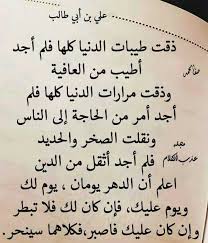 علي بن أبي طالب
ذقت طيبات الدنيا كلها فلم أجد
أطيب من العافية
وذقت مرارات الدنيا كلها فلم
أجد أمر من الحاجة إلى الناس
ونقلت الصخر والحديد
فلم أجد أثقل من الدين
اعلم أن الدهر يومان ، يوم لك
ويوم عليك، فإن كان لك فلا تبطر
وإن كان عليك فاصبر،فكلاهما سينحر.